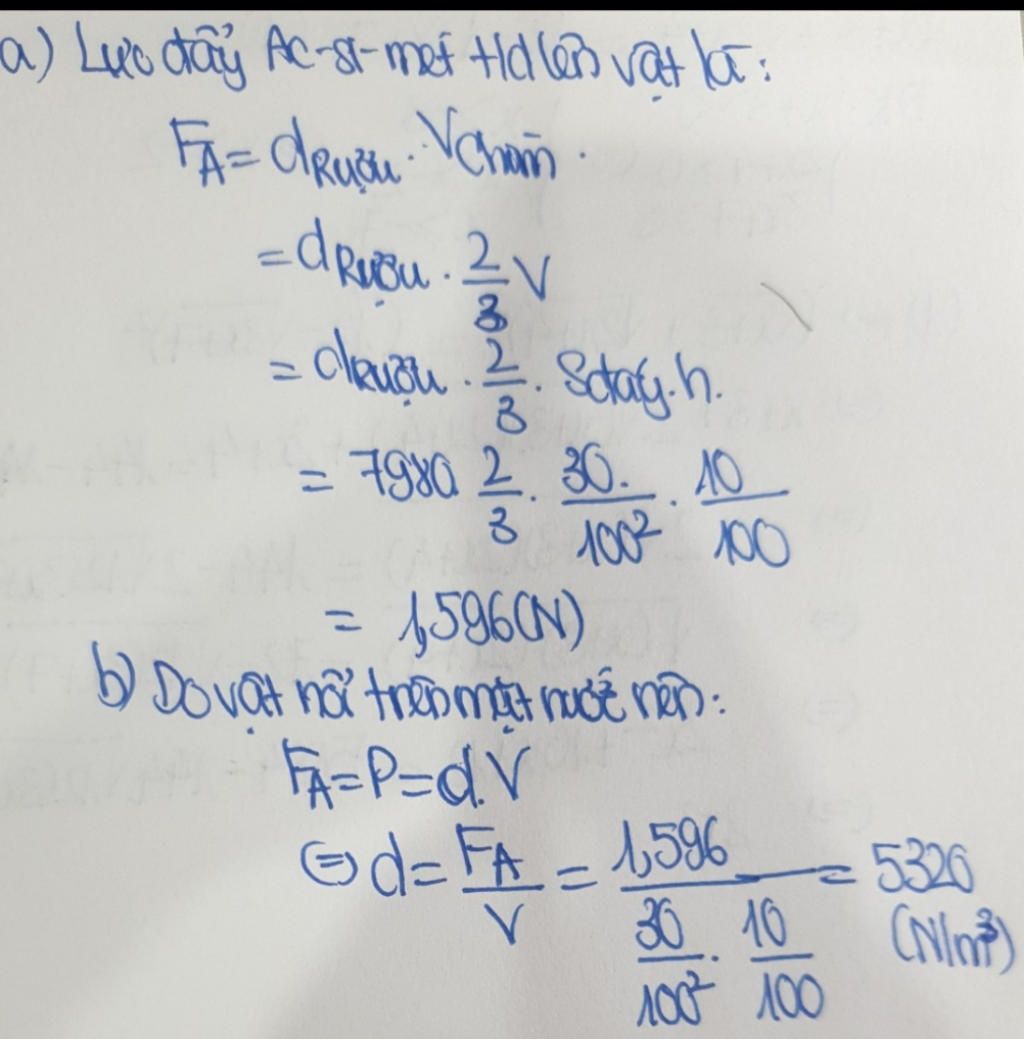 a) Lực đẩy Ac-si-met t/d lên vật là:
F_A = d_Rượu . V_chìm .
= d_Rượu . 2/3 V
= d_Rượu . 2/3 . S_đáy . h.
= 7980 2/3 . 30/100² . 10/100
= 1,596 (N)
b) Do vật nổi trên mặt nước nên:
F_A = P = d.V
⇔ d = F_A/V = 1,596/(30/100² . 10/100) = 5320 (N/m³)